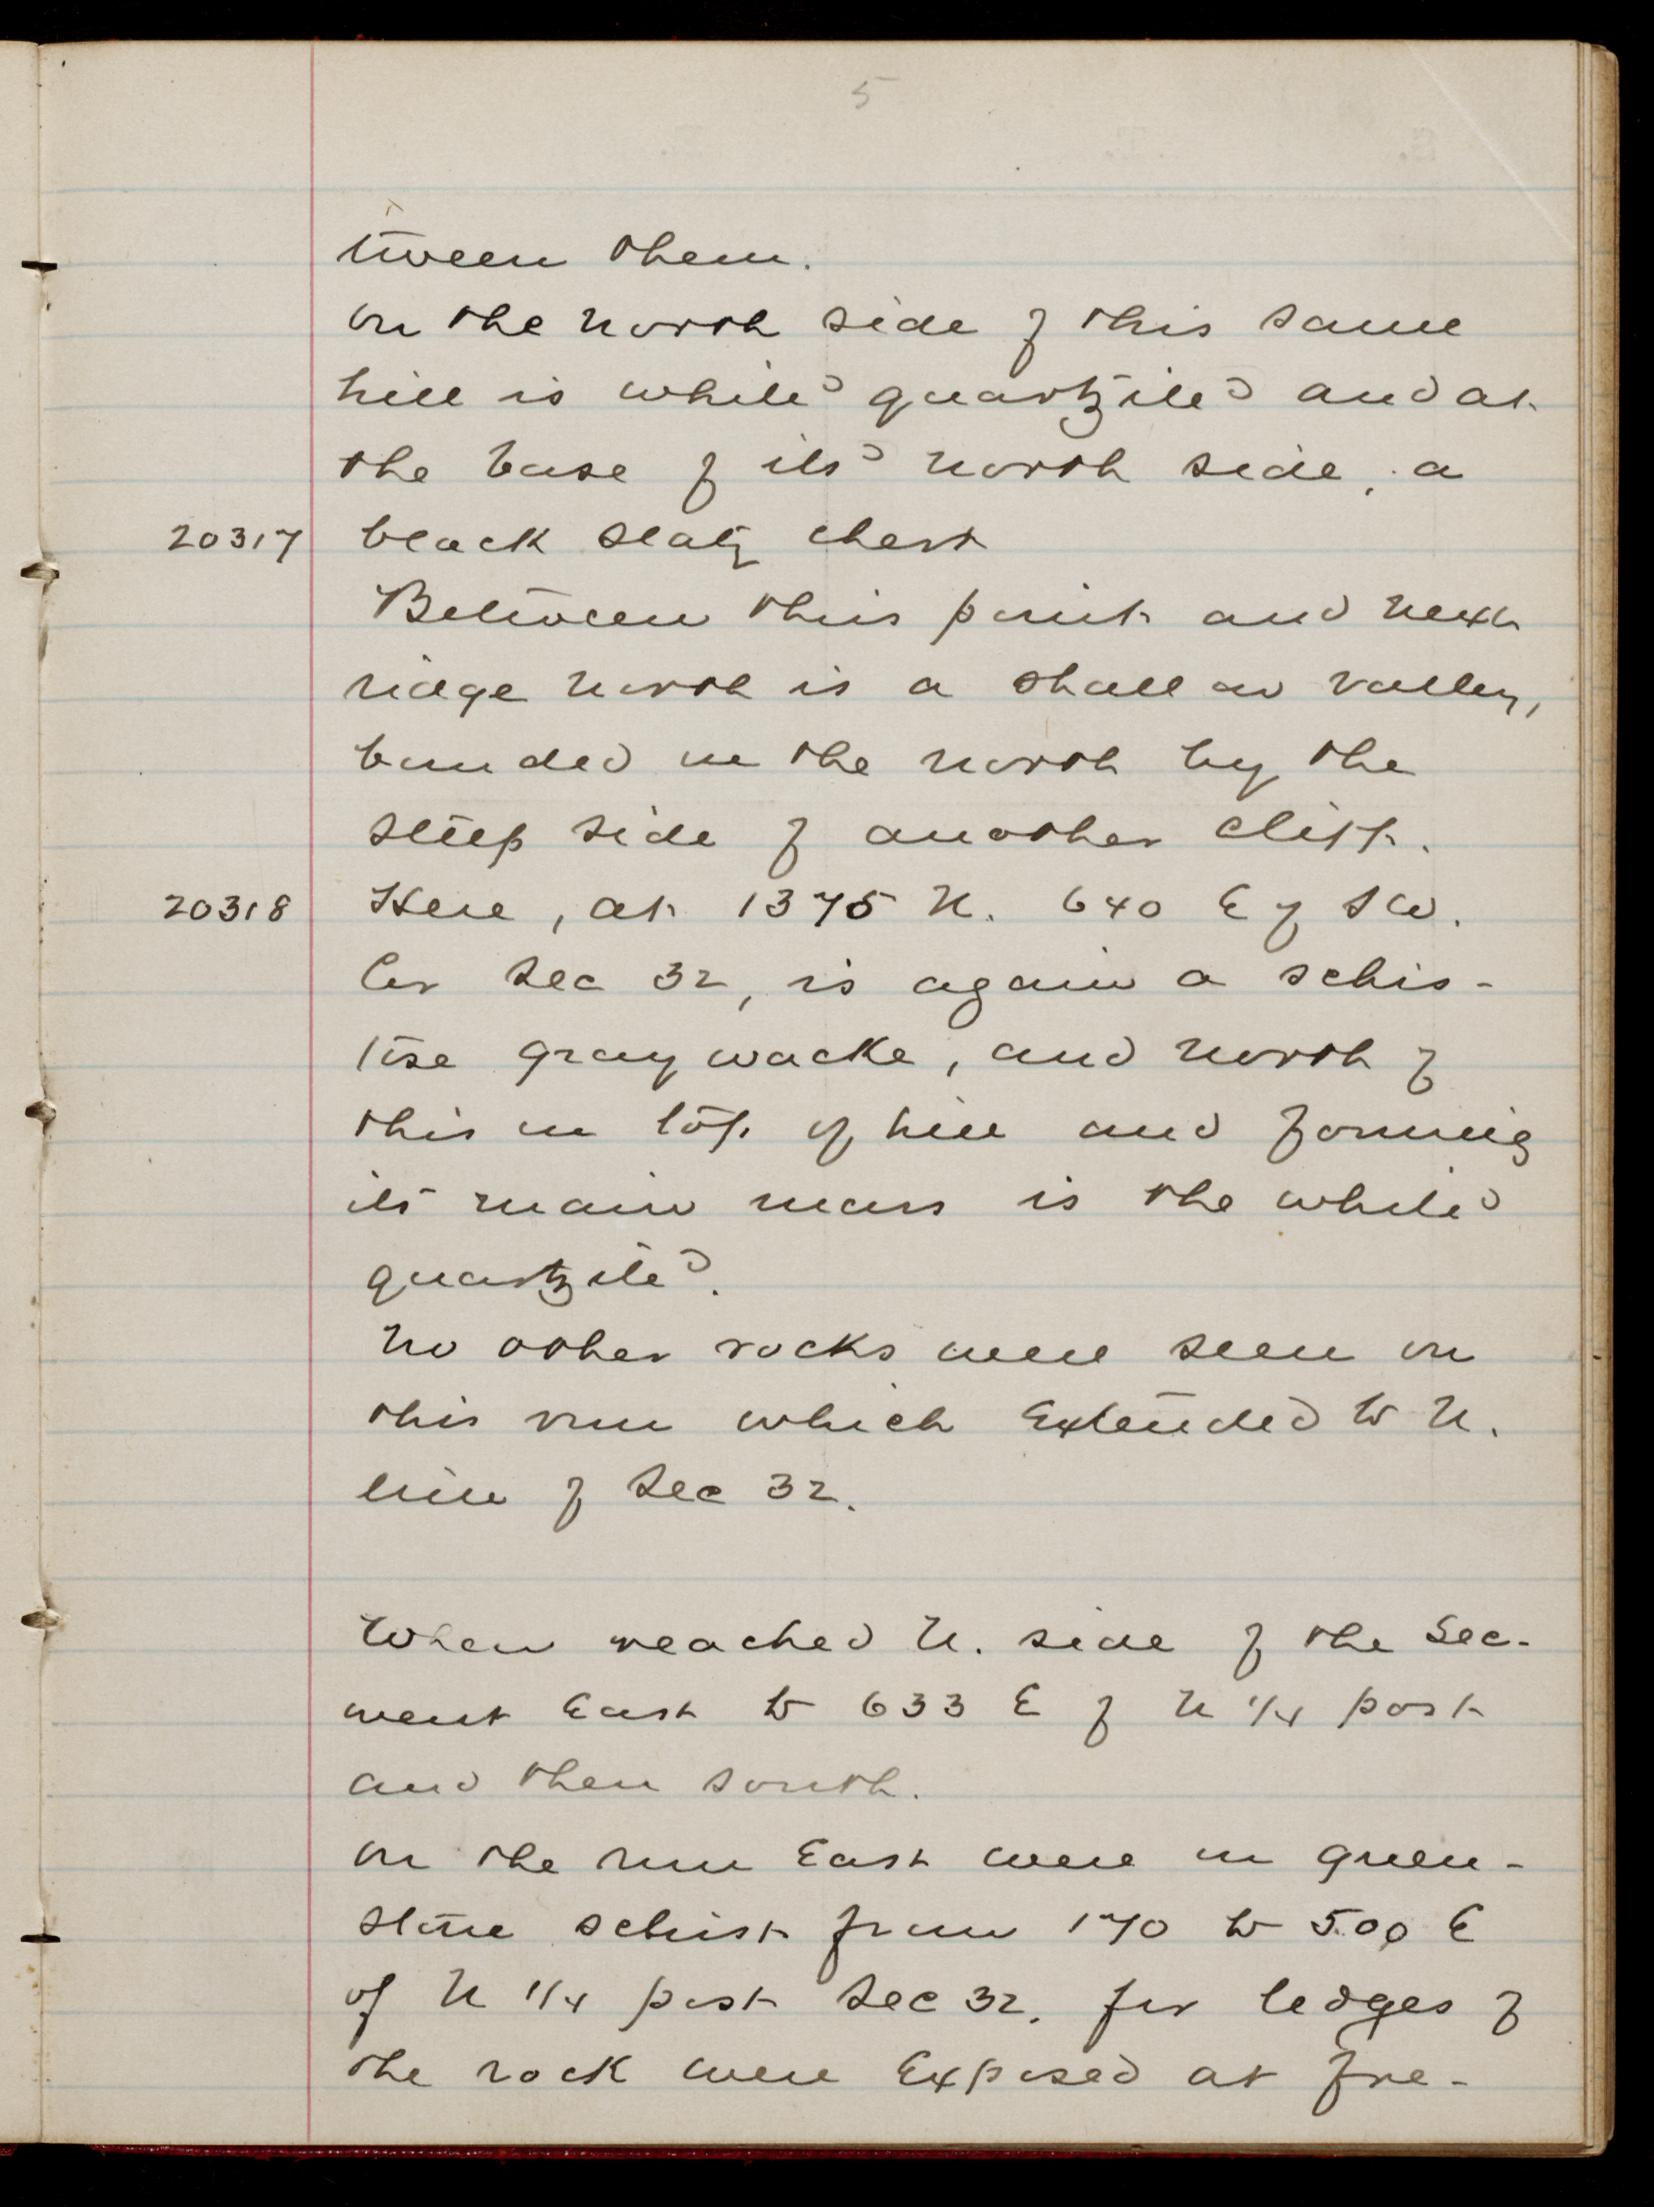 5
tween them.
On the north side of this same
hill is white quartzite and at
the base of its north side, a
20317 black slaty chert
Between this point and next
ridge north is a shallow valley,
bounded on the north by the
steep side of another cliff.
20318 Here, at 1375 N. 640 E of SW.
Cor Sec 32, is again a schis-
tose graywacke, and north of
this on top of hill and forming
its main mass is the white
quartzite.
No other rocks were seen on
this run which extended to N.
line of Sec 32.
When reached N. side of the Sec.
went East to 633 E of N 1/4 post
and then south.
On the run East were in green-
stone schist from 170 to 500 E
of N 1/4 post Sec 32. for ledges of
the rock were exposed at fre-